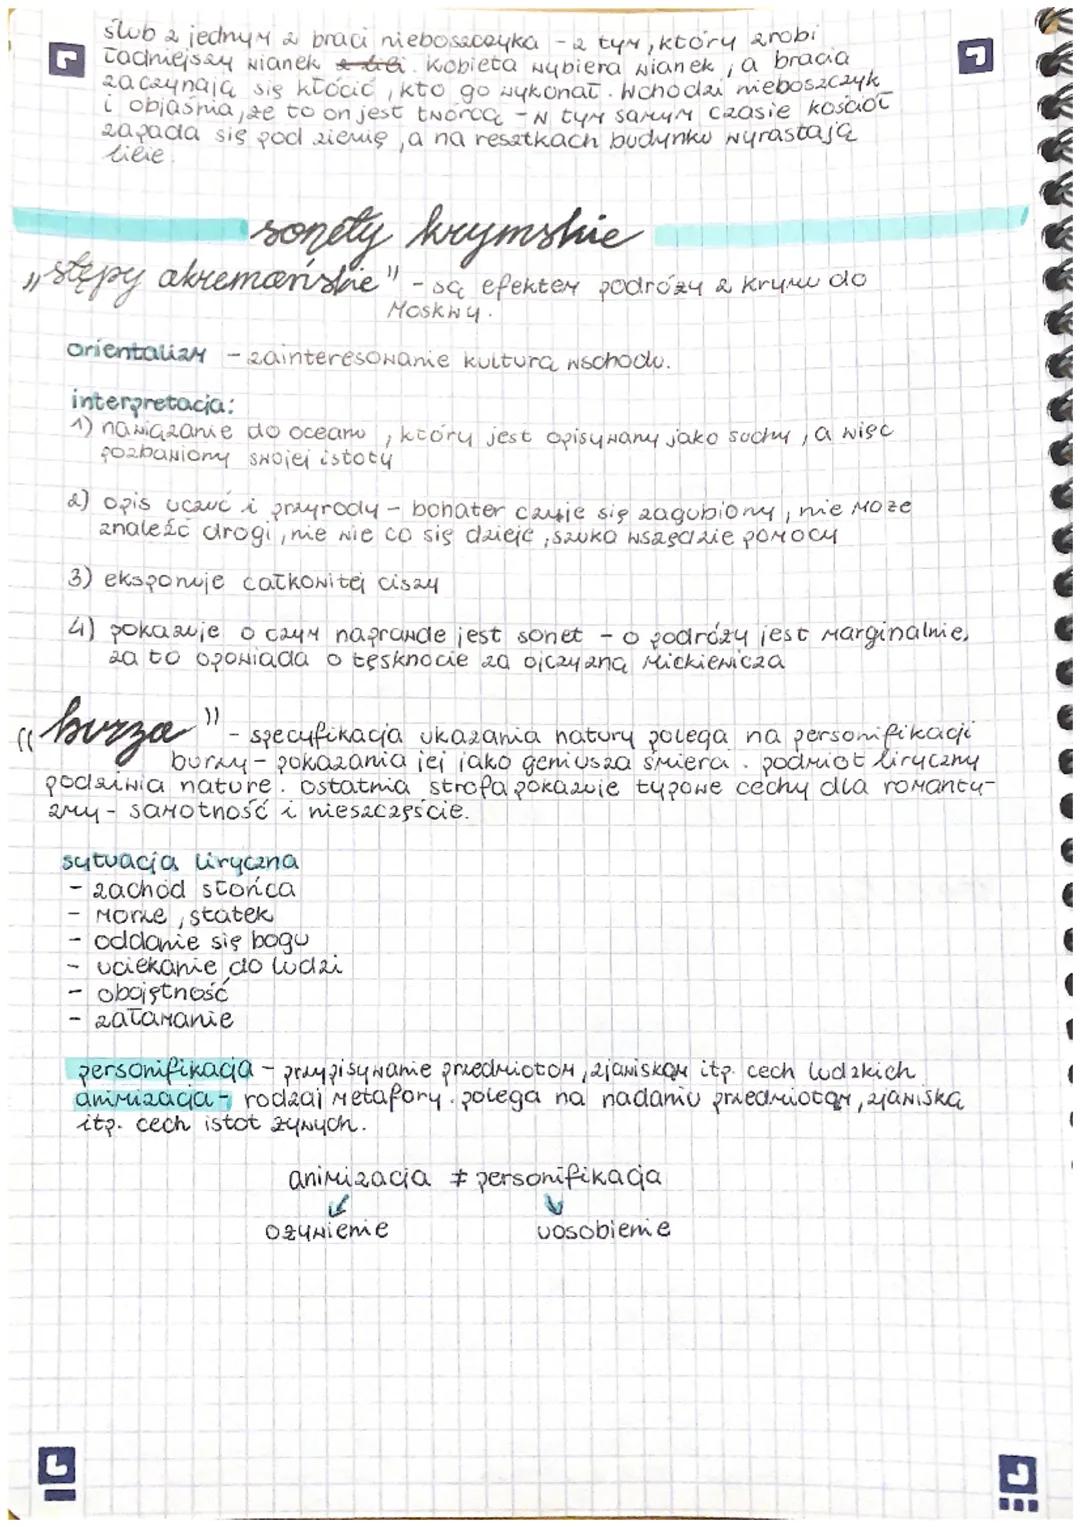 ślub z jednym z braci nieboszczyka - z tym, który zrobi
ładniejszy wianek. Kobieta wybiera wianek, a bracia
zaczynają się kłócić, kto go wykonał. Wchodzi nieboszczyk
i objaśnia, że to on jest twórcą - w tym samym czasie kościół
zapada się pod ziemię, a na resztkach budynku wyrastają
lilie.
sonety krymskie
„stepy akremańskie" - są efektem podróży z Krymu do
Moskwy.
orientalizm - zainteresowanie kulturą wschodu.
interpretacja:
1) nawiązanie do oceanu, który jest opisywany jako suchy, a więc
pozbawiony swojej istoty
2) opis uczuć i przyrody - bohater czuje się zagubiony, nie może
znaleźć drogi, nie wie co się dzieje, szuka wszędzie pomocy
3) eksponuje całkowitej ciszy
4) pokazuje o czym naprawdę jest sonet - o podróży jest marginalnie,
za to opowiada o tęsknocie za ojczyzną Mickiewicza
„burza" - specyfikacja ukazania natury polega na personifikacji
burzy - pokazania jej jako geniusza śmierci. podmiot liryczny
podziwia naturę. ostatnia strofa pokazuje typowe cechy dla romanty-
zmy - samotność i nieszczęście.
sytuacja liryczna
- zachód słońca
- morze, statek
- oddanie się bogu
- uciekanie do ludzi
- obojętność
- załamanie
personifikacja - przypisywanie przedmiotom, zjawiskom itp. cech ludzkich
animizacja - rodzaj metafory. polega na nadaniu przedmiotom, zjawiską
itp. cech istot żywych.
animizacja ≠ personifikacja
ożywienie uosobienie